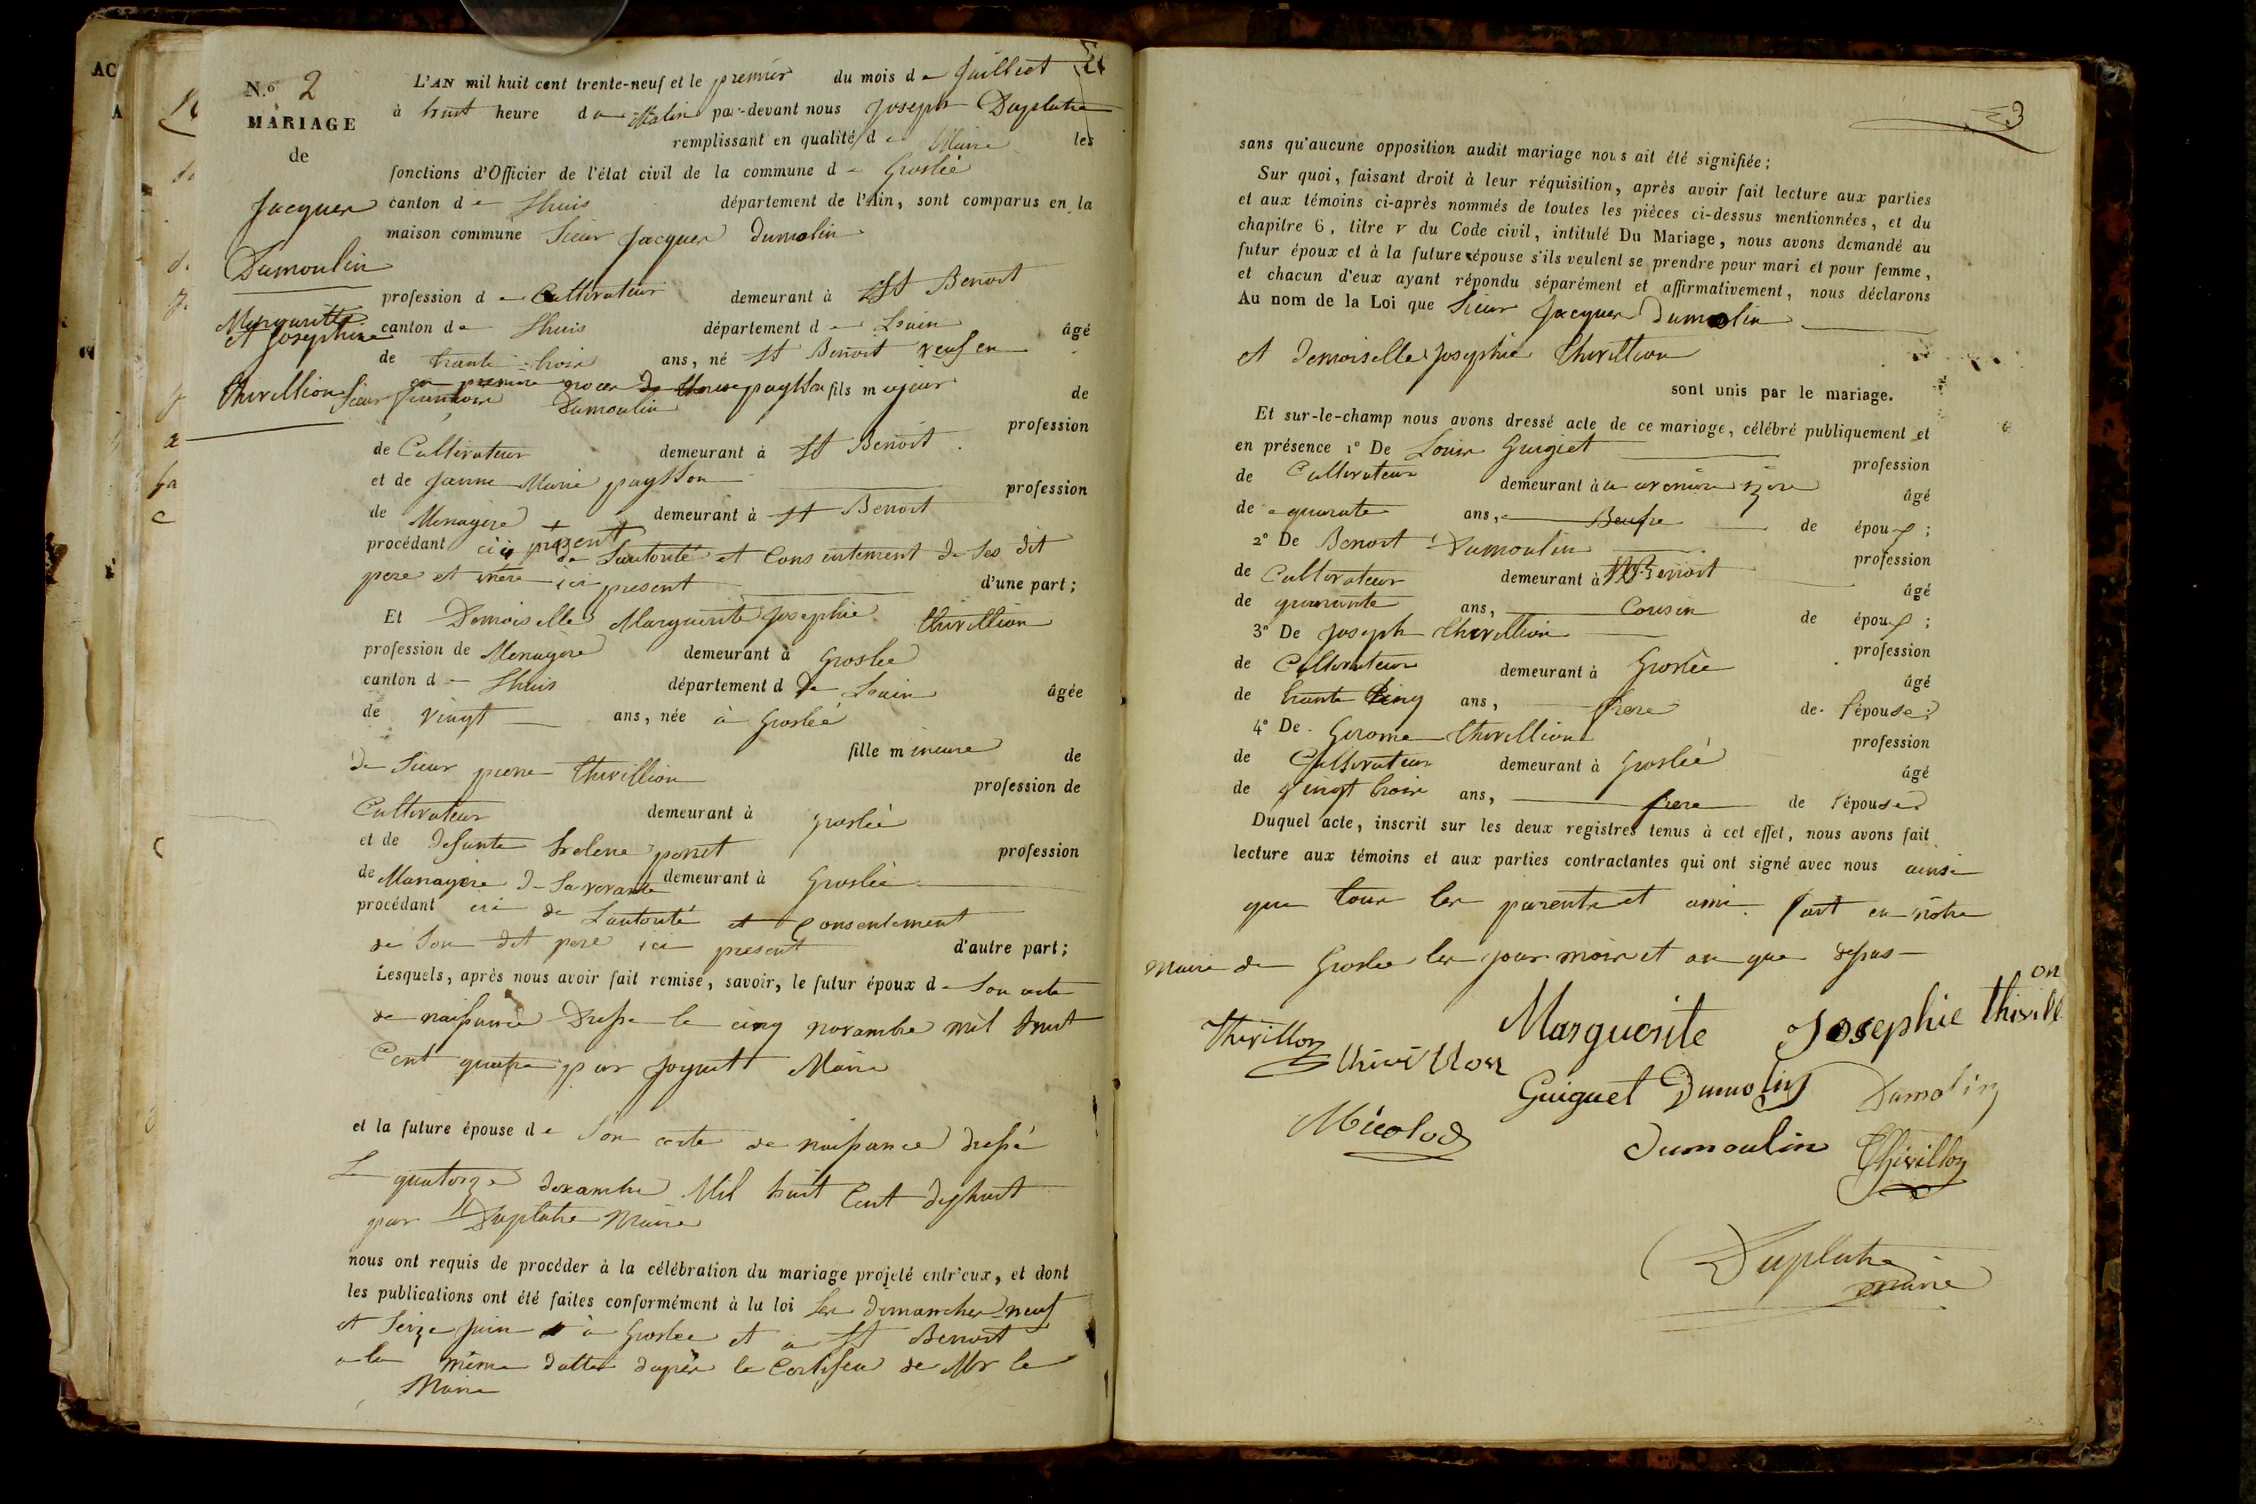 N.º 2
MARIAGE
de
Jacques
Dumoulin
Marguerite
et Josephine
Thivillion
L'AN mil huit cent trente-neuf et le premier du mois de Juillet
à huit heure du Matin par-devant nous Joseph Duplatre
remplissant en qualité de Maire les
fonctions d'Officier de l'état civil de la commune de Groslée
canton de Lhuis département de l'Ain, sont comparus en la
maison commune Sieur Jacques Dumolin
profession de Cultivateur demeurant à St Benoit
canton de Lhuis département de Lain âgé
de trante trois ans, né St Benoit veuf en
en premiere noces de payson fils majeur de
Sieur Dumoulin profession
de Cultivateur demeurant à St Benoit
et de Janne Marie paysson profession
de Menagere demeurant à St Benoit
procédant ici present
de Lautorité et Consentement de Ses dit
pere et mere ici present d'une part;
Et Demoiselle Marguerite Josephie Thivillion
profession de Menagere demeurant à Groslée
canton de Lhuis département de Lain âgée
de vingt ans, née à Groslée
fille mineure de
de Sieur pierre Thivillion profession de
Cultivateur demeurant à Groslée
et de defunte helene perret profession
de Managere de Sa vivante demeurant à Groslée
procédant ici de Lautorité et Consentement
de Son dit pere ici present d'autre part;
Lesquels, après nous avoir fait remise, savoir, le futur époux de Son acte
de naissance Dressé le cinq novambre mil huit
Cent quatre par Joguet Maire
et la future épouse de Son acte de naissance dressé
Le quatorze dexambre Mil huit Cent dixhuit
par Duplatre Maire
nous ont requis de procéder à la célébration du mariage projeté entr'eux, et dont
les publications ont été faites conformément à la loi Les dimanches neuf
et Seize Juin à Groslee et a St Benoit
a la même datte daprès le Certificat de Mr le
Maire
3
sans qu'aucune opposition audit mariage nous ait été signifiée;
Sur quoi, faisant droit à leur réquisition, après avoir fait lecture aux parties
et aux témoins ci-après nommés de toutes les pièces ci-dessus mentionnées, et du
chapitre 6, titre V du Code civil, intitulé Du Mariage, nous avons demandé au
futur époux et à la future épouse s'ils veulent se prendre pour mari et pour femme,
et chacun d'eux ayant répondu séparément et affirmativement, nous déclarons
Au nom de la Loi que Sieur Jacques Dumolin
et demoiselle Josephie Thivillion
sont unis par le mariage.
Et sur-le-champ nous avons dressé acte de ce mariage, célébré publiquement et
en présence 1º De Louis Guigiet profession
de Cultivateur demeurant à âgé
de quarate ans, de époux;
2º De Benoit Dumoulin profession
de Cultivateur demeurant à St Benoit âgé
de quarante ans, Cousin de époux;
3º De Joseph Thivillion profession
de Cultivateur demeurant à Groslée âgé
de trante Cinq ans, frere de l'épouse;
4º De Gerome Thivillion profession
de Cultivateur demeurant à Groslée âgé
de Vingt trois ans, frere de l'épouse
Duquel acte, inscrit sur les deux registres tenus à cet effet, nous avons fait
lecture aux témoins et aux parties contractantes qui ont signé avec nous ainsi
que tous les parents et ami fait en notre
Mairie de Groslee les jour mois et an que desus
Thivillon
Marguerite Josephie Thivillon
Thivillon
Guiguet Dumolin Dumolin
Micolod
Dumoulin Thivillon
Duplatre
maire